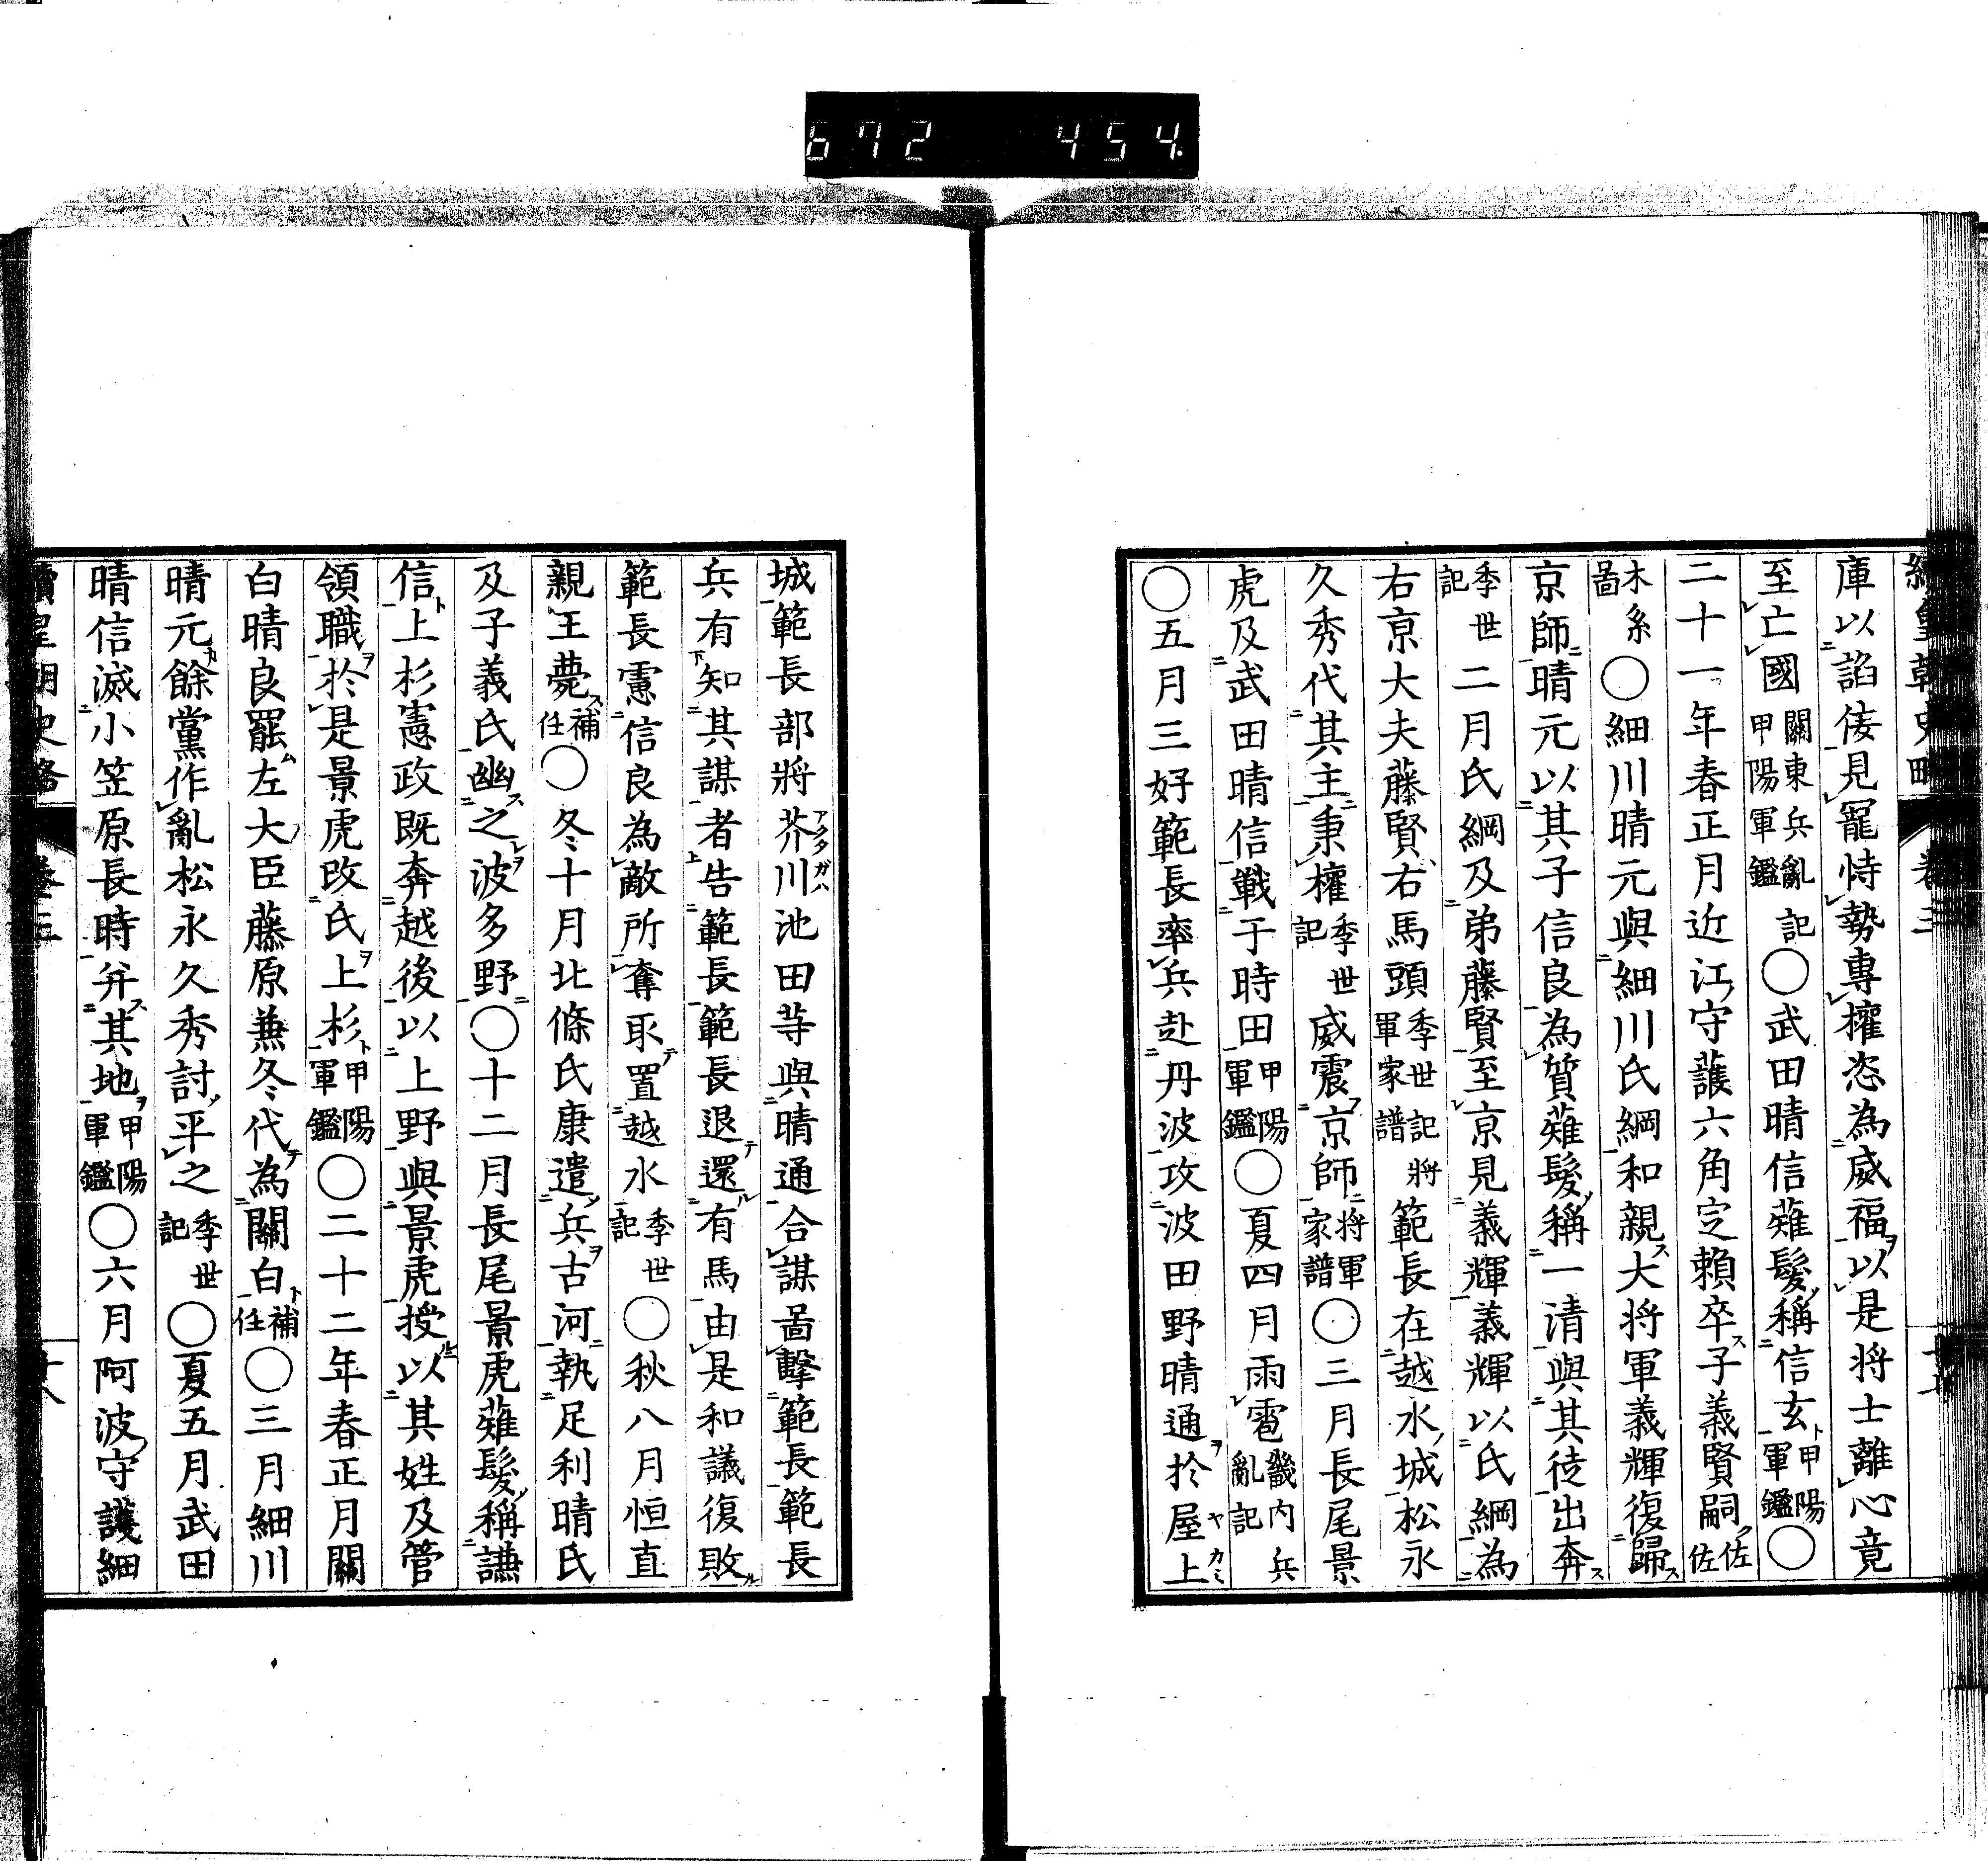 672 454
庫以諂倭見寵恃勢專權恣為威福以是将士離心竟
至亡國關東兵亂記甲陽軍鑑〇武田晴信薙髮稱信玄甲陽軍鑑〇
二十一年春正月近江守護六角定賴卒子義賢嗣佐佐
木系啚〇細川晴元與細川氏綱和親大将軍義輝復歸
京師晴元以其子信良為質薙髮稱一清與其徒出奔
季世記二月氏綱及弟藤賢至京見義輝義輝以氏綱為
右京大夫藤賢右馬頭季世記将軍家譜範長在越水城松永
久秀代其主秉權季世記威震京師将軍家譜〇三月長尾景
虎及武田晴信戰于時田甲陽軍鑑〇夏四月雨雹畿内兵亂記
〇五月三好範長率兵赴丹波攻波田野晴通於屋上ヤカミ
城範長部將芥川アクタガハ池田等與晴通合謀啚擊範長範長
兵有知其謀者告範長範長退還有馬由是和議復敗
範長憲信良為敵所奪取置越水季世記〇秋八月恒直
親王薨補任〇冬十月北條氏康遣兵古河執足利晴氏
及子義氏幽之波多野〇十二月長尾景虎薙髮稱謙
信上杉憲政既奔越後以上野與景虎授以其姓及管
領職於是景虎改氏上杉甲陽軍鑑〇二十二年春正月關
白晴良罷左大臣藤原兼冬代為關白補任〇三月細川
晴元餘黨作亂松永久秀討平之季世記〇夏五月武田
晴信滅小笠原長時并其地甲陽軍鑑〇六月阿波守護細